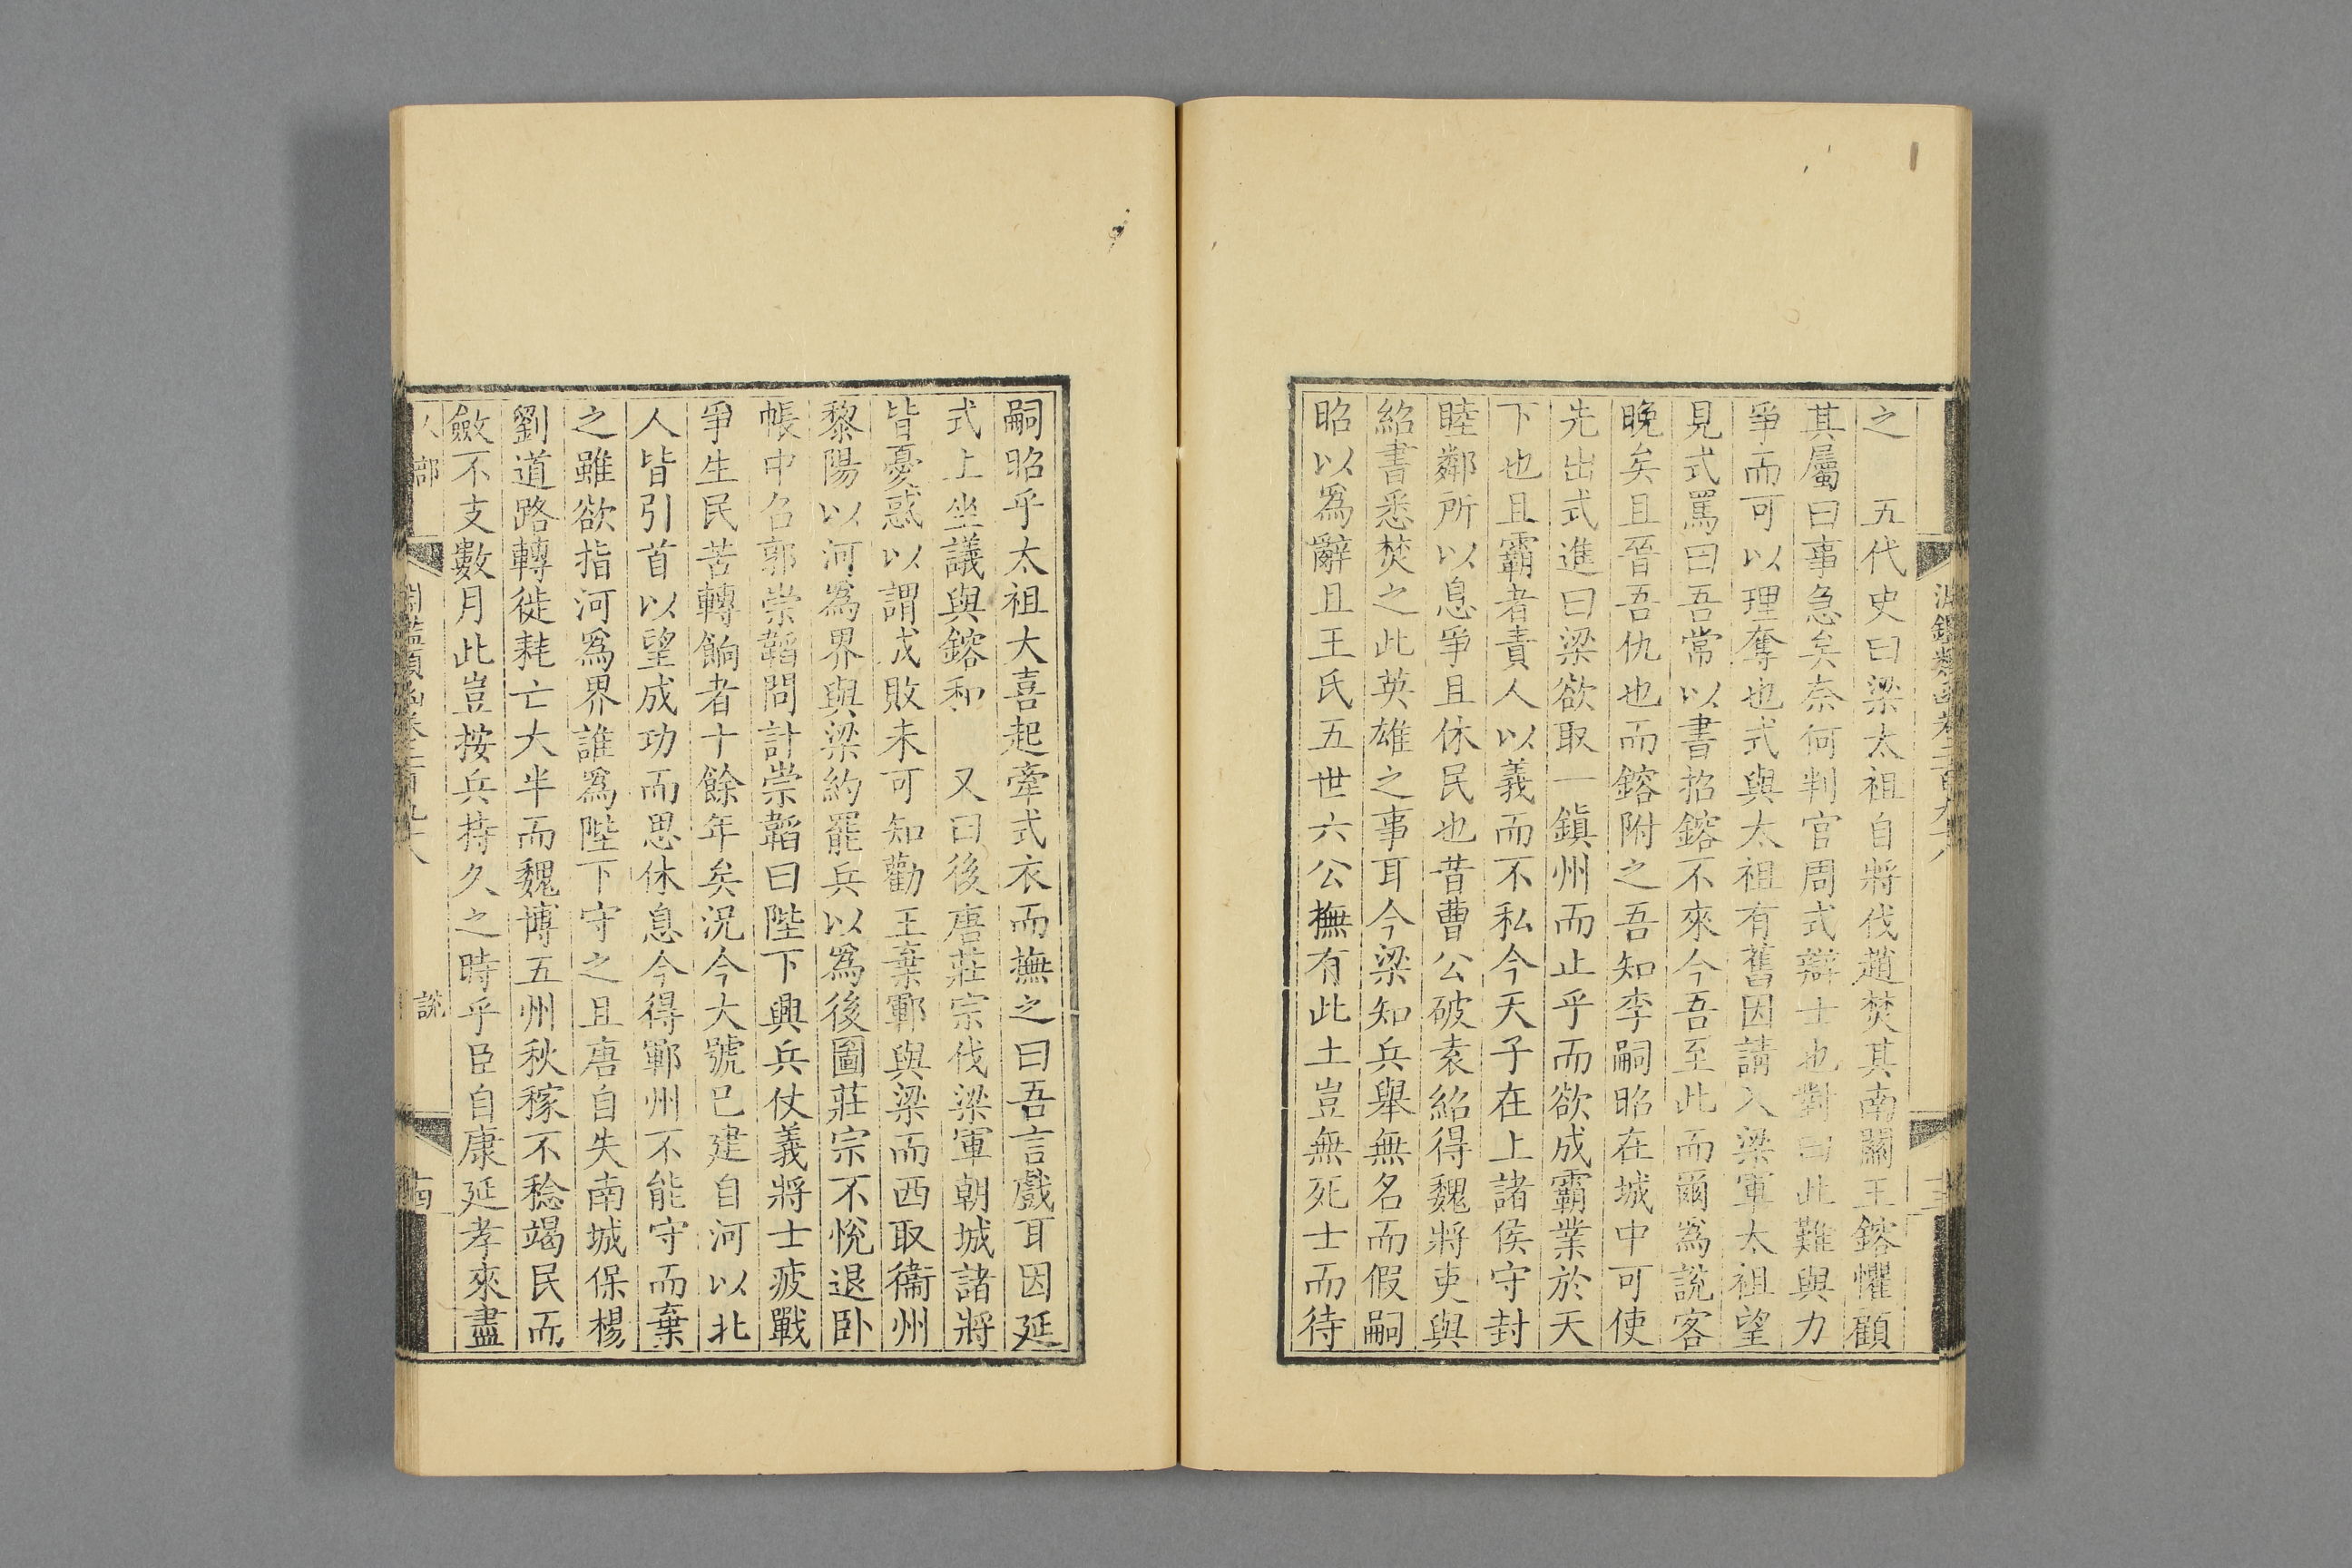 之　五代史曰梁太祖自將伐趙焚其南關王鎔懼顧
其屬曰事急矣奈何判官周式辯士也對曰此難與力
爭而可以理奪也式與太祖有舊因請入梁軍太祖望
見式罵曰吾常以書招鎔不來今吾至此而爾爲說客
晚矣且晉吾仇也而鎔附之吾知李嗣昭在城中可使
先出式進曰梁欲取一鎮州而止乎而欲成霸業於天
下也且霸者責人以義而不私今天子在上諸侯守封
睦鄰所以息爭且休民也昔曹公破袁紹得魏將吏與
紹書悉焚之此英雄之事耳今梁知兵舉無名而假嗣
昭以爲辭且王氏五世六公撫有此土豈無死士而待
嗣昭乎太祖大喜起牽式衣而撫之曰吾言戲耳因延
式上坐議與鎔和　又曰後唐莊宗伐梁軍朝城諸將
皆憂惑以謂成敗未可知勸王棄鄆與梁而西取衞州
黎陽以河爲界與梁約罷兵以爲後圖莊宗不悅退卧
帳中召郭崇韜問計崇韜曰陛下興兵仗義將士疲戰
爭生民苦轉餉者十餘年矣況今大號已建自河以北
人皆引首以望成功而思休息今得鄆州不能守而棄
之雖欲指河爲界誰爲陛下守之且唐自失南城保楊
劉道路轉徙耗亡大半而魏博五州秋稼不稔竭民而
斂不支數月此豈按兵持久之時乎臣自康延孝來盡
人部　說